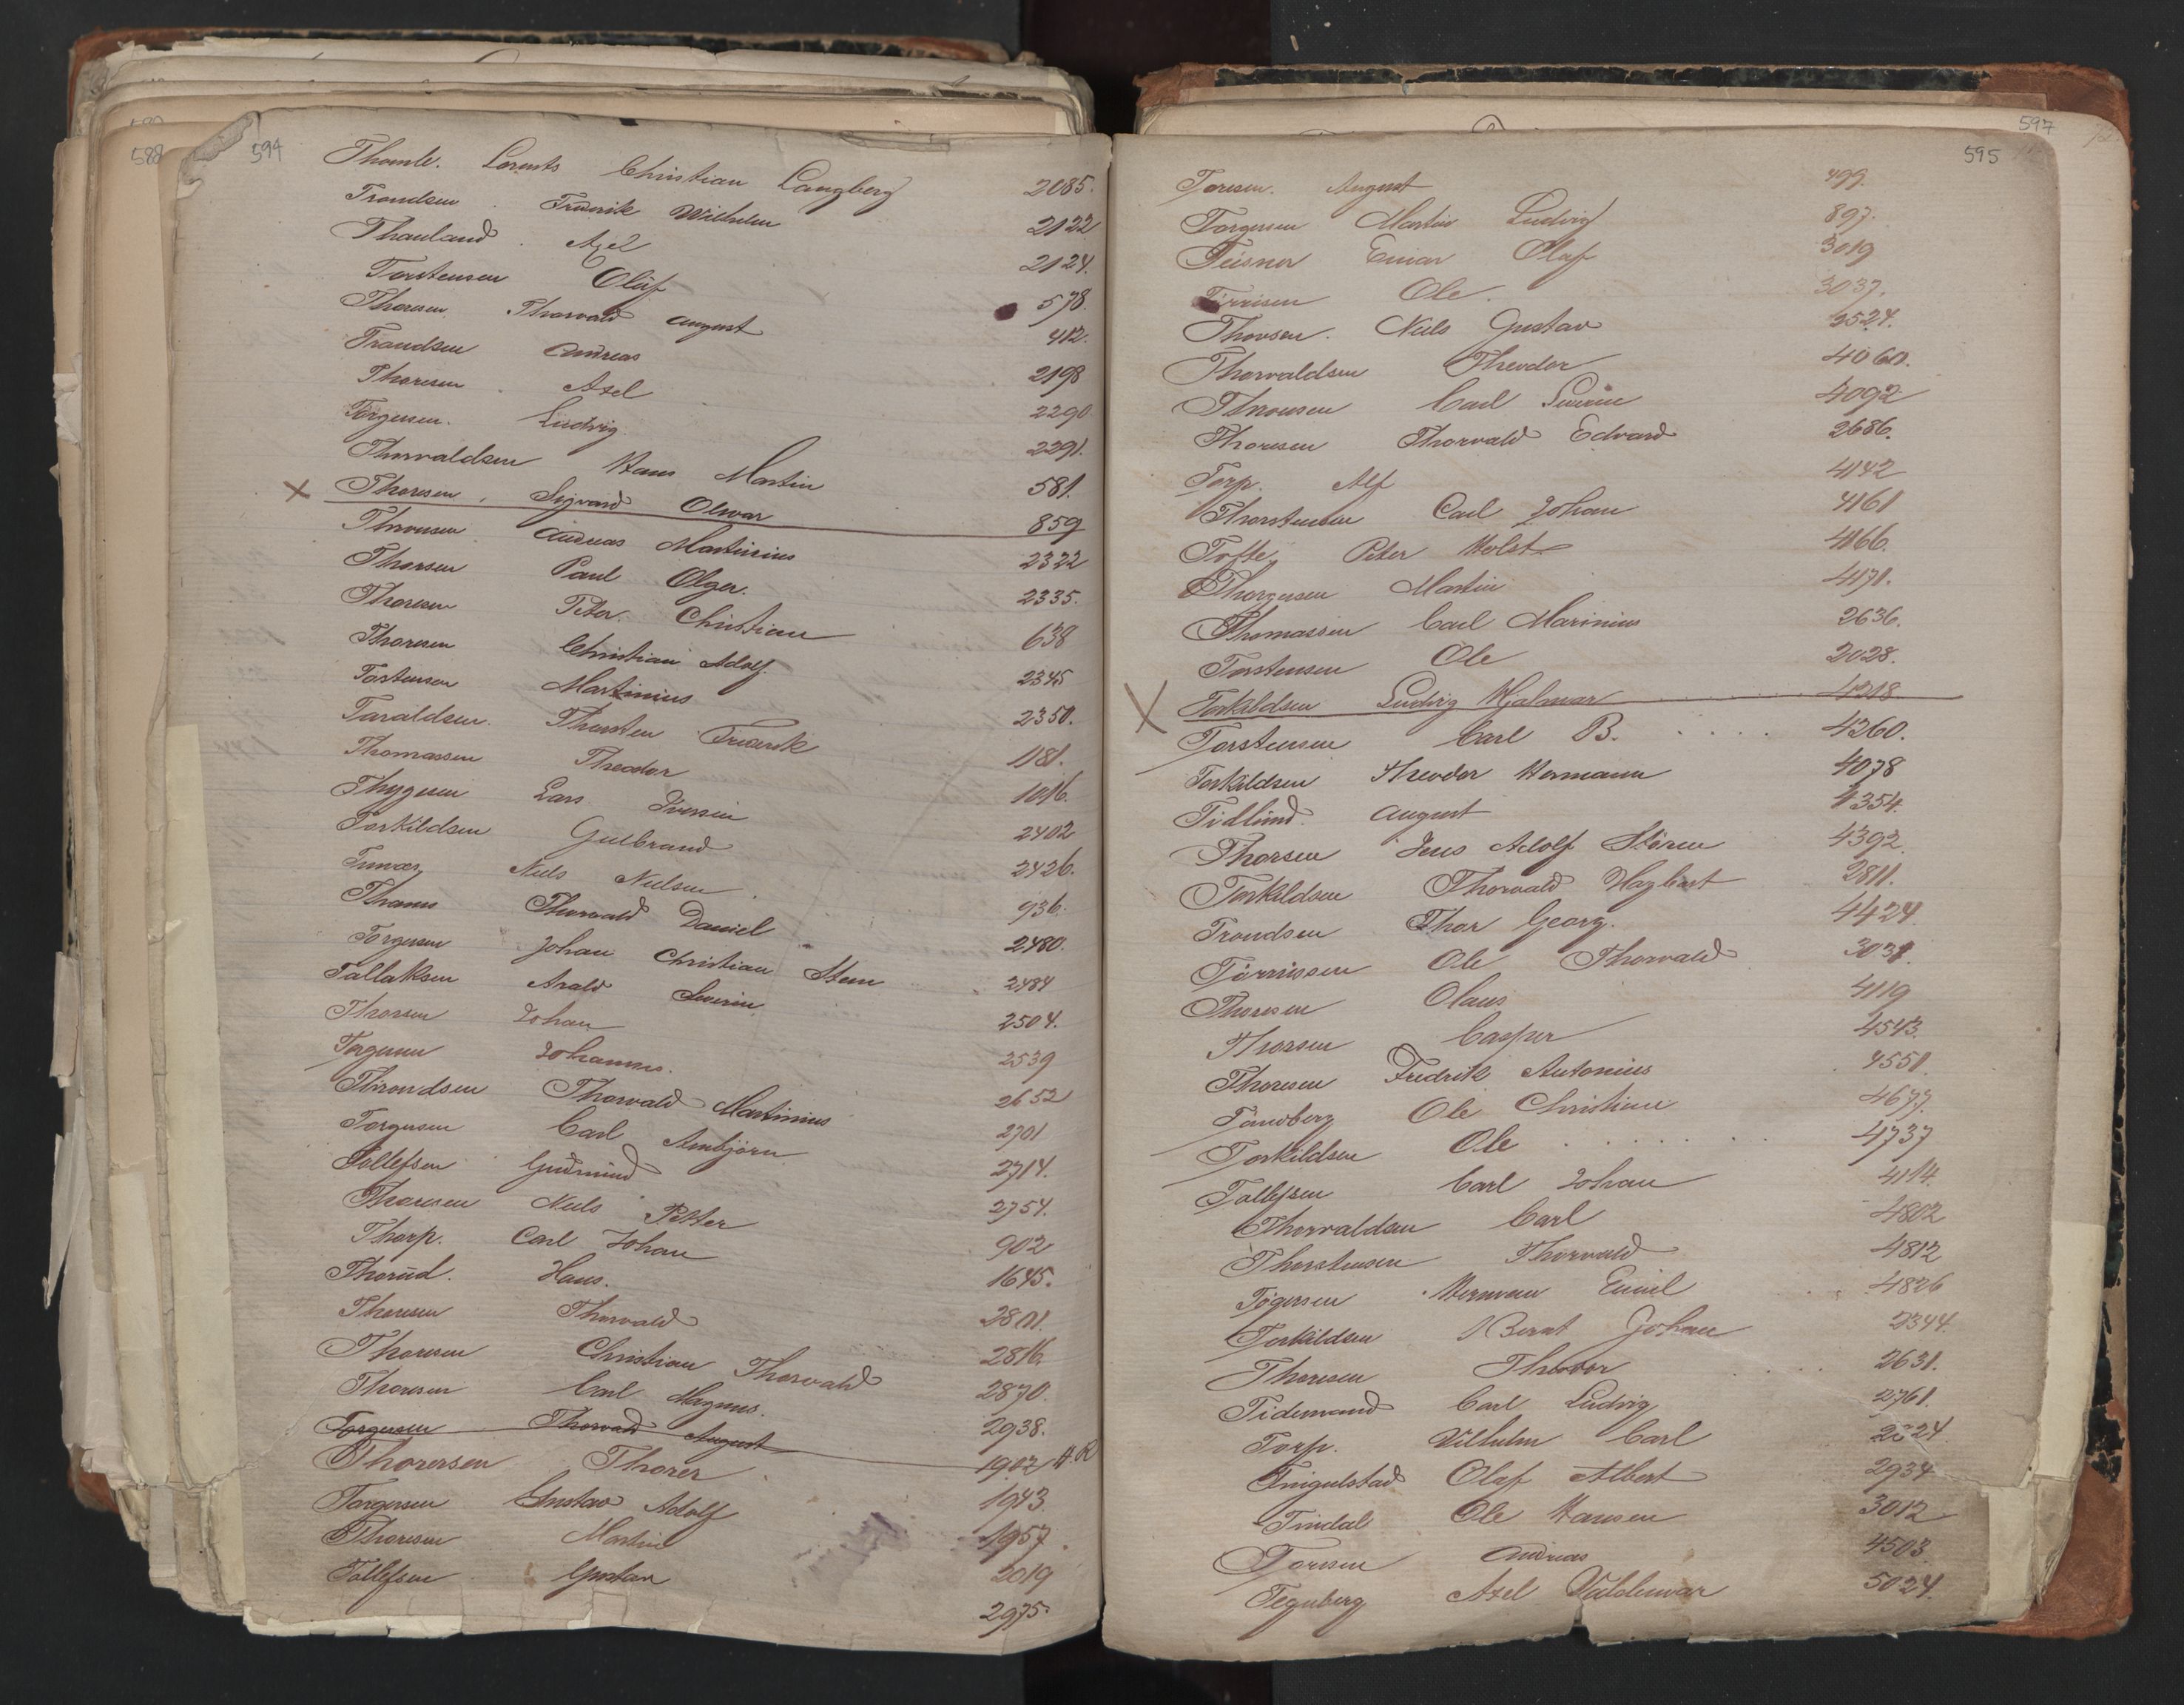 594
588
Thomle. Lorents Christian Langberg 2085.
Trondsen Frederik Wilhelm 2122
Thauland Axel 2124.
Torstensen Oluf 578.
Thoresen Thorvald August 412.
Trandsen Andreas 2198
Thoresen Axel 2290
Törgersen. Ludvig 2291.
Thorvaldsen Hans Martin 581.
X Thoresen, Sigvard Olavar 859
Thronsen Andreas Martinius 2322
Thorsen Paul Olger. 2335.
Thoresen Peter Christian 638
Thoresen Christian Adolf. 2345
Torstensen Martinius 2350.
Taraldsen. Thorsten Frederik 1181.
Thomassen Theodor 1016.
Thygesen Lars Iversen 2402
Torkildsen Gulbrand 2426.
Niels Nielsen 936.
Thams Thorvald Daniel 2480.
Torgersen Johan Christian Steen 2484
Tallaksen Arald Severin 2504.
Thorsen Johan 2539
Torgersen Johannes. 2652
Throndsen Thorvald Martinius 2701
Torgersen Carl Arnbjörn 2714.
Tollefsen Gudmund 2754.
Thoresen Niels Petter 902
Thorp. Carl Johan 1645.
Thorud. Hans. 2801.
Thoresen Thorvald 2816.
Thoresen Christian Thorvald 2870.
Thoresen Carl Magnus. 2938.
Torgersen Thorvald August 1902 H.R
Thorersen Thorer 1943.
Torgersen Gustav Adolf 1957.
Thoresen Martin 2019
Tollefsen Gustav 2975.
597
595
Toresen. August 499.
Torgersen Martin Ludvig 897.
Einar Olaf 3019
Ole. 3037.
Thorsen. Niels Gustav 3524.
Thorvaldsen Theodor 4060.
Thronsen Carl Severin 4092
Thoresen Thorvald Edvard 2686.
Torp. Alf 4142
Thorstensen Carl Johan 4161
Tofte, Peter Holst 4166.
Thorgersen Martin 4171.
Thomassen Carl Marinius 2636.
Torstensen Ole 2028.
X Torkildsen Ludvig Hjalmar 4218
Torstensen Carl B. 4260.
Torkildsen Theodor Hermann 4078
Tidlund. August 4354.
Thorsen Jens Adolf Stören 4392.
Torkildsen Thorvald Hagbart 2811.
Trondsen Thor Georg. 4424.
Törrissen Ole Thorvald 3038.
Thoresen Olaus 4119
Thorsen Casper 4543.
Thoresen Fredrik Antonius 4551.
Tandberg Ole Christian 4677.
Torkildsen Ole 4737
Tollefsen Carl Johan 4114.
Thorvaldsen Carl 4802
Thorstensen Thorvald 4812
Tögersen Herman Emil 4826
Torkildsen Bernt Johan 2344.
Thoresen Theodor 2631.
Tidemand Carl Ludvig 2761.
Torp. Vilhelm Carl 2824.
Tingulstad Olaf Albert 2934
Tindal Ole Hansen 3012
Toresen Andreas 4503
Tegnberg Axel Valdemar 5024.